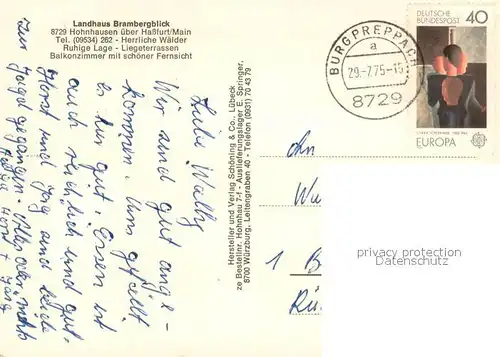 Landhaus Brambergblick
8729 Hohnhausen über Haßfurt/Main
Tel. (09534) 262 - Herrliche Wälder
Ruhige Lage - Liegeterrassen
Balkonzimmer mit schöner Fernsicht
Liebe Wally
Wir sind gut ange-
kommen. Uns gefällt
es hier gut. Essen ist
auch reichlich und gut.
Horst und Jörg sind beide
zur Jagd gegangen. Alles oder nichts
Horst + Jörg
Hersteller und Verlag Schöning & Co., Lübeck
ze Bestellnr. Hohnhau 7-f - Auslieferungslager E. Springer,
8700 Würzburg, Leitengraben 40 - Telefon (0931) 70 43 79
BURGPREPPACH
a
29.-7.75-15
8729
DEUTSCHE
BUNDESPOST
40
EUROPA
CEPT
1 B
privacy protection
Datenschutz